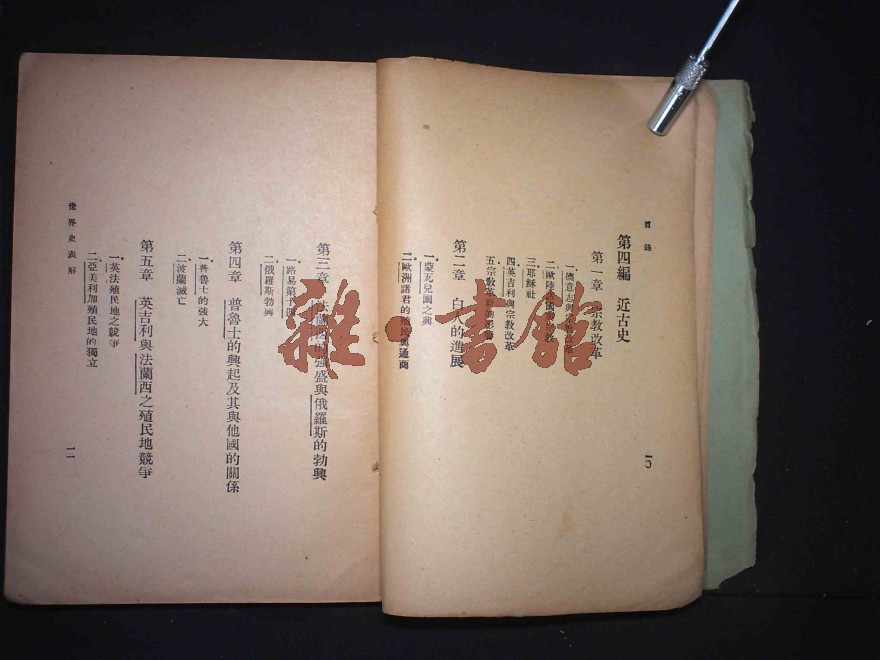 目錄
第四編　近古史
第一章　宗教改革
一．德意志與宗教改革
二．歐陸諸國與宗教
三．耶穌社
四．英吉利與宗教改革
五．宗教改革的影響
第二章　白人的進展
一．蒙兀兒國之興
二．歐洲諸君的殖民與通商
一〇
第三章　法蘭西的強盛與俄羅斯的勃興
一．路易第十四
二．俄羅斯勃興
第四章　普魯士的興起及其與他國的關係
一．普魯士的強大
二．波蘭滅亡
第五章　英吉利與法蘭西之殖民地競爭
一．英法殖民地之競爭
二．亞美利加殖民地的獨立
世界史表解
一一
雜·書館